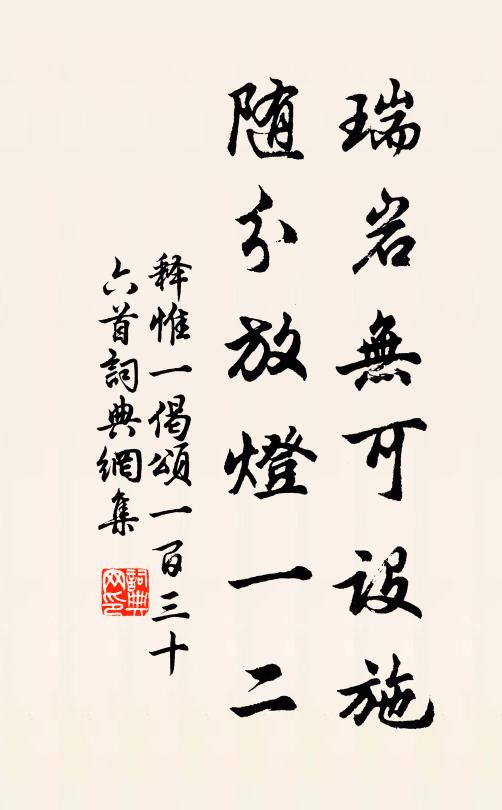 瑞岩無可設施
随分放燈一二
释惟一偈頌一百三十
六首詞典網集
詞典網印